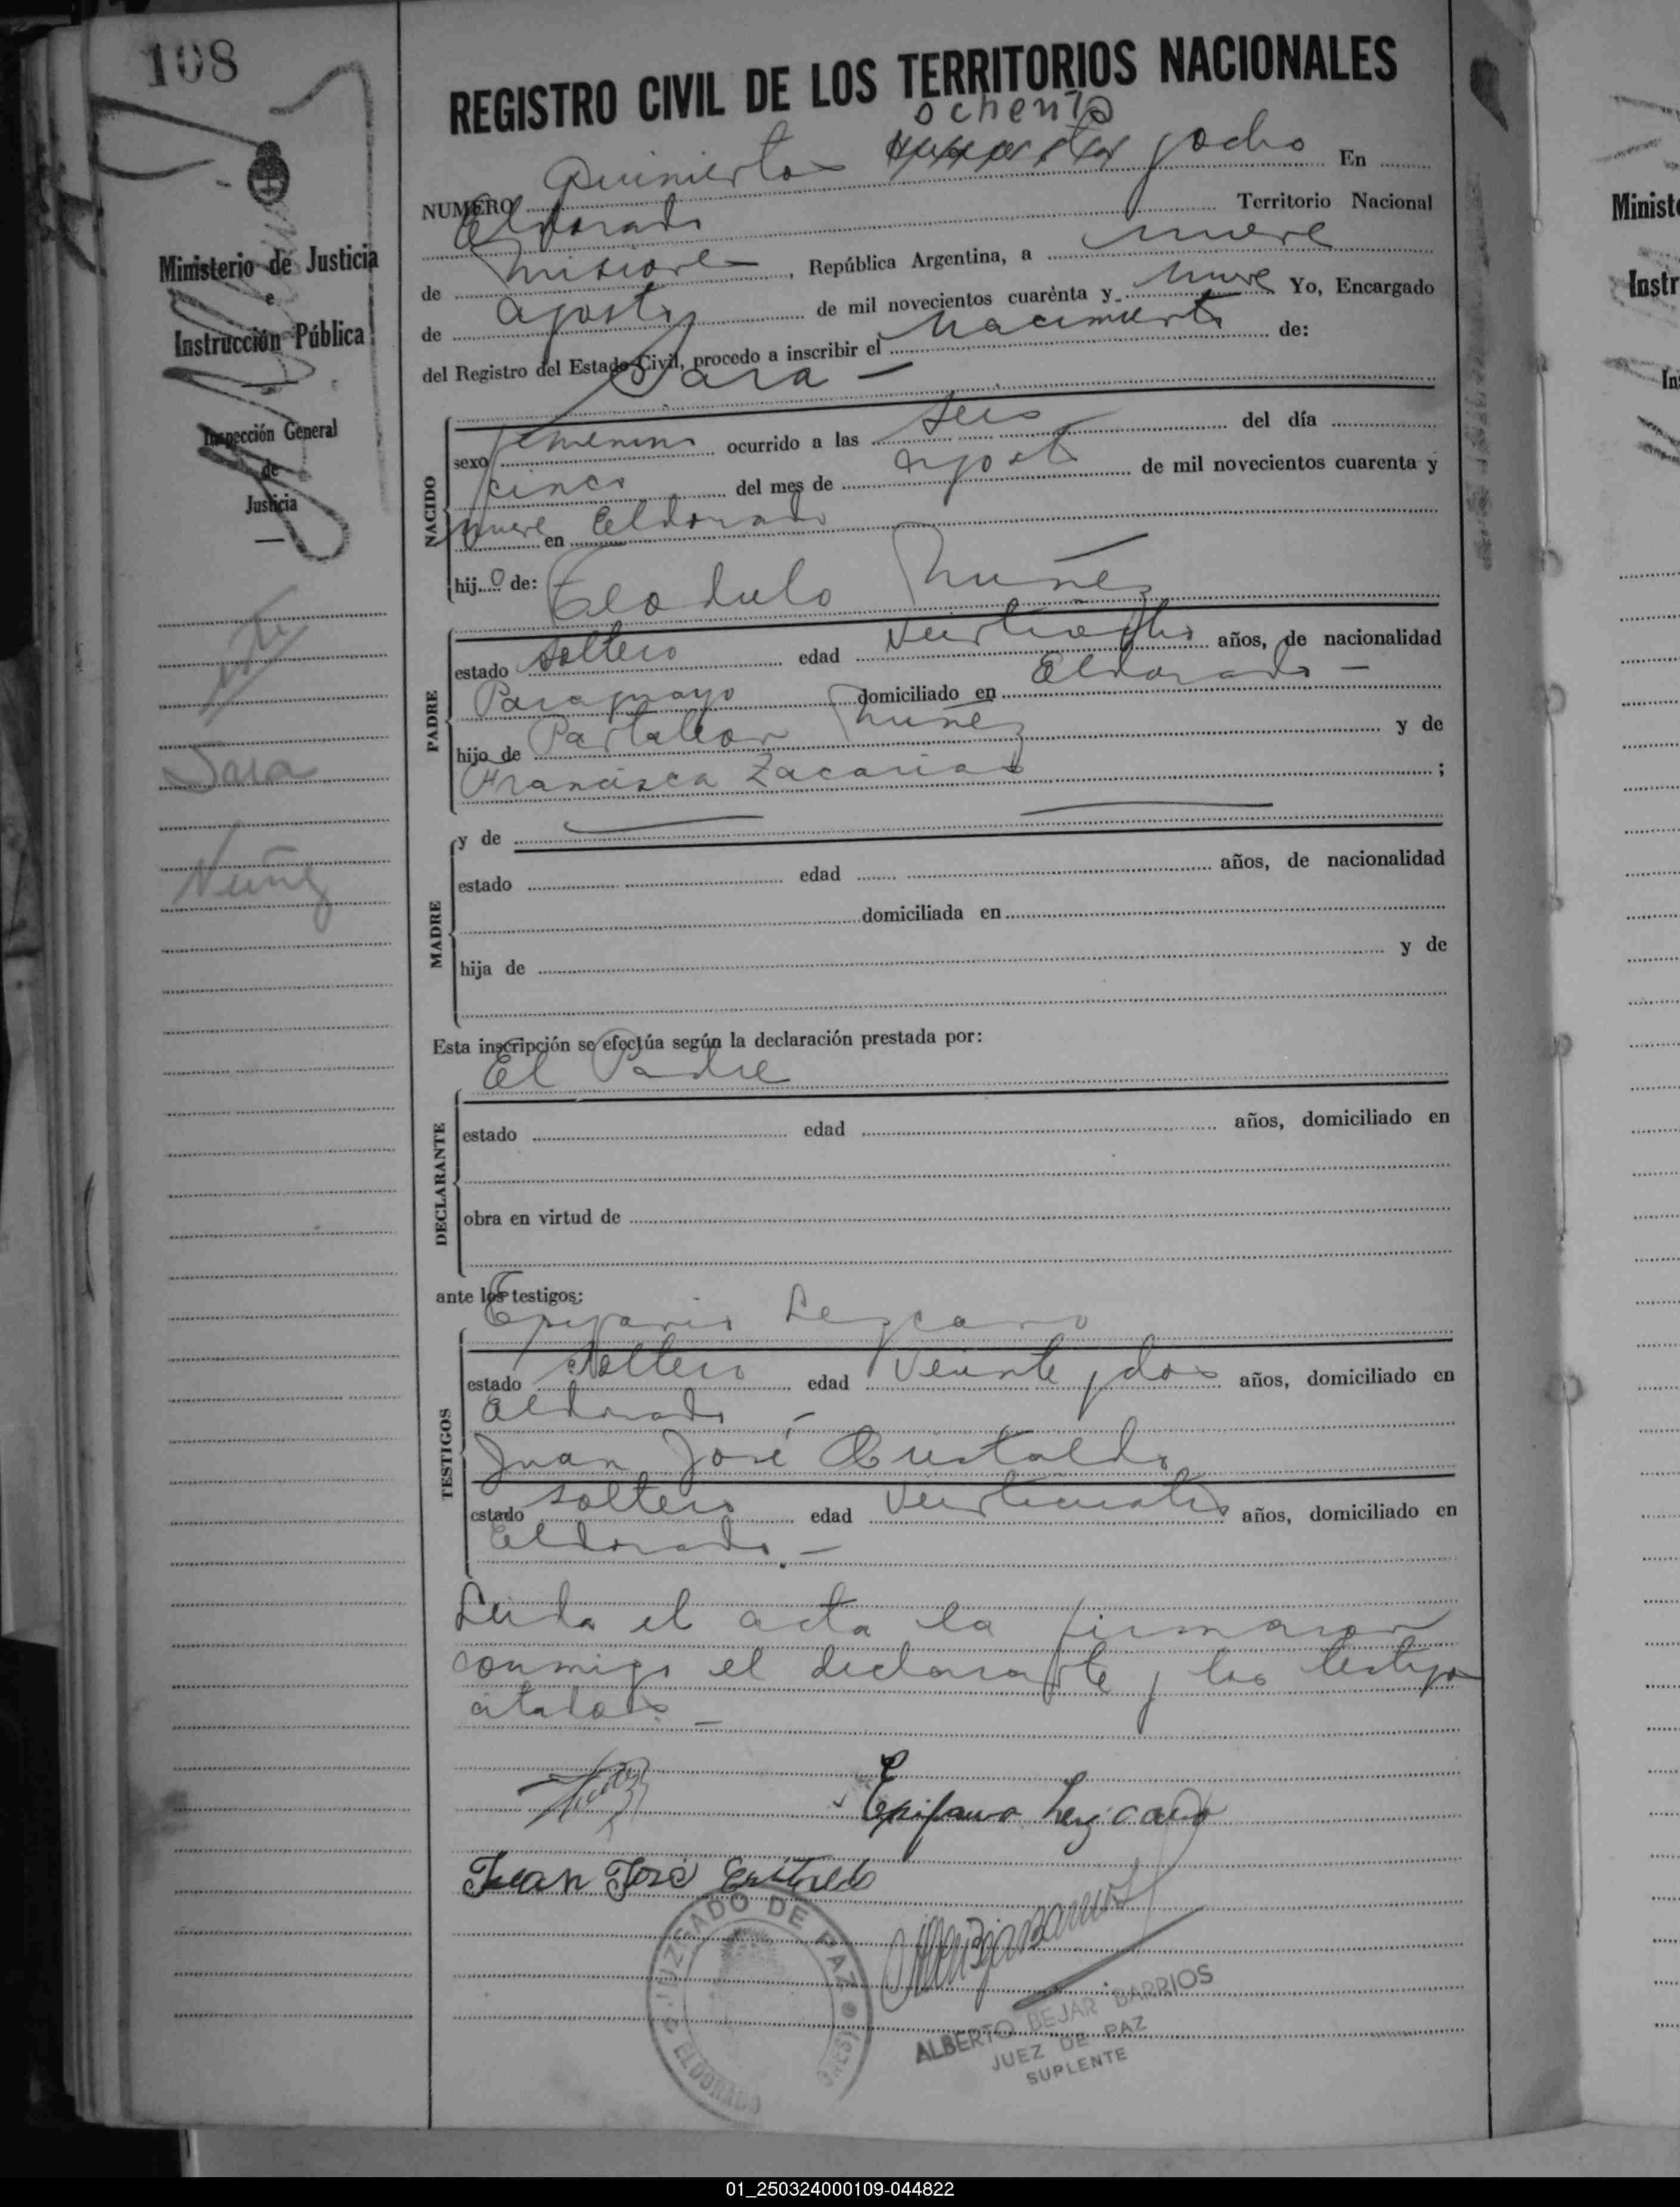 108
REGISTRO CIVIL DE LOS TERRITORIOS NACIONALES
ochenta
NUMERO Quinientos y ocho En
Eldorado Territorio Nacional
de Misiones, República Argentina, a nueve
de agosto de mil novecientos cuarenta y nueve Yo, Encargado
del Registro del Estado Civil, procedo a inscribir el nacimiento de:
Sara —
Ministerio de Justicia
e
Instrucción Pública
Inspección General
de
Justicia
Sara
Nuñez
NACIDO
sexo femenino ocurrido a las seis del día
cinco del mes de agosto de mil novecientos cuarenta y
nueve en Eldorado
hij o de: Teodulo Nuñez
PADRE
estado soltero edad veintiocho años, de nacionalidad
Paraguayo domiciliado en Eldorado —
hijo de Pantaleon Nuñez y de
Francisca Zacarias ;
MADRE
y de
estado edad años, de nacionalidad
domiciliada en
hija de y de
Esta inscripción se efectúa según la declaración prestada por:
El Padre
DECLARANTE
estado edad años, domiciliado en
obra en virtud de
ante los testigos:
Epifanio Lezcano
TESTIGOS
estado soltero edad veinte y dos años, domiciliado en
Eldorado —
Juan José Cristaldo
estado soltero edad veinticuatro años, domiciliado en
Eldorado. —
Leida el acta la firmaron
conmigo el declarante y los testigos
citados. —
Epifanio Lezcano
Juan José Cristaldo
JUZGADO DE PAZ
ELDORADO
ALBERTO BEJAR BARRIOS
JUEZ DE PAZ
SUPLENTE
Minist
Instr
In
01_250324000109-044822